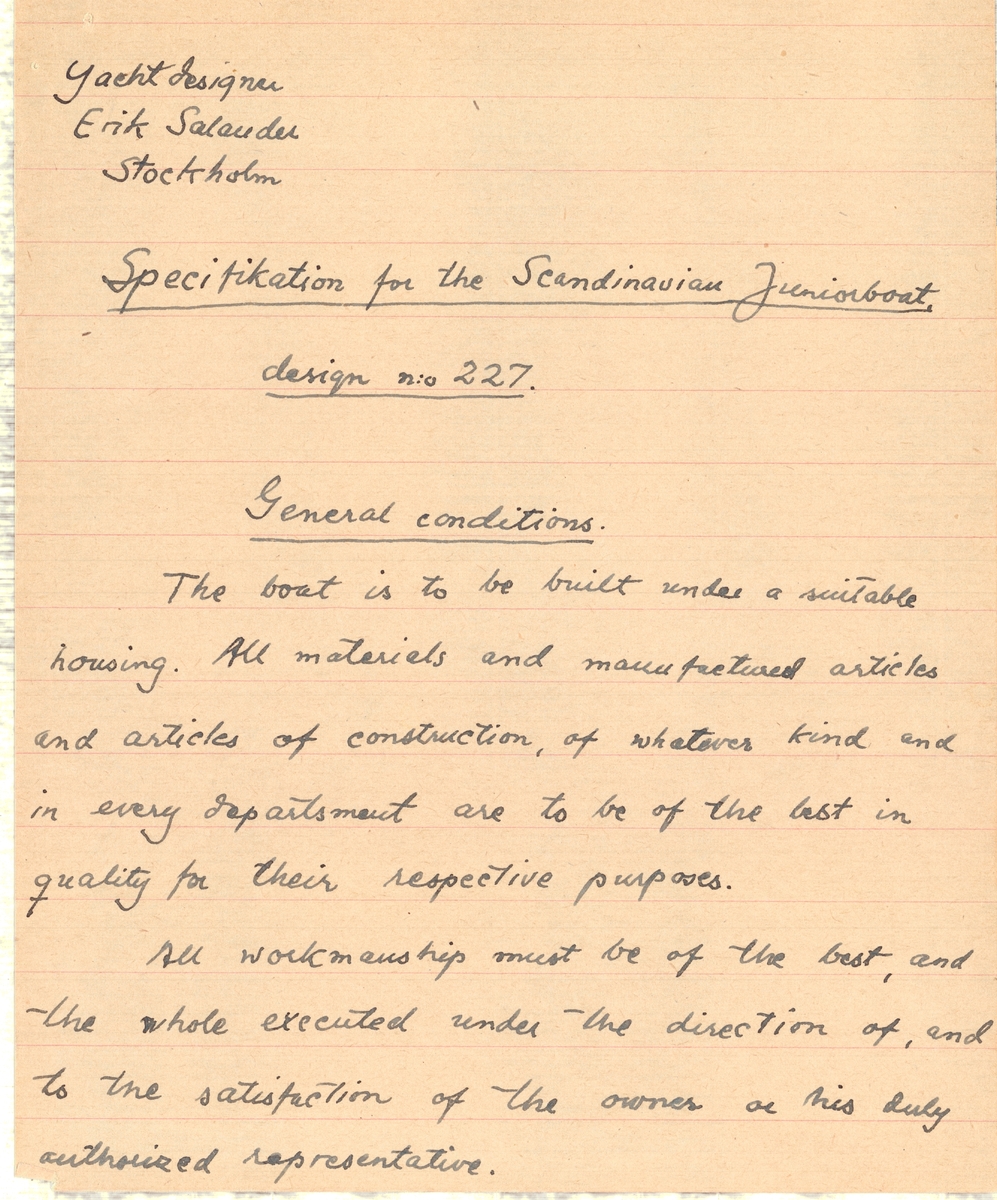 Yachtdesigner
Erik Salander
Stockholm
Specifikation for the Scandinavian Juniorboat,
design n:o 227.
General conditions.
The boat is to be built under a suitable
housing. All materials and manufactured articles
and articles of construction, of whatever kind and
in every departsment are to be of the best in
quality for their respective purposes.
All workmanship must be of the best, and
the whole executed under the direction of, and
to the satisfaction of the owner or his duly
authorized representative.